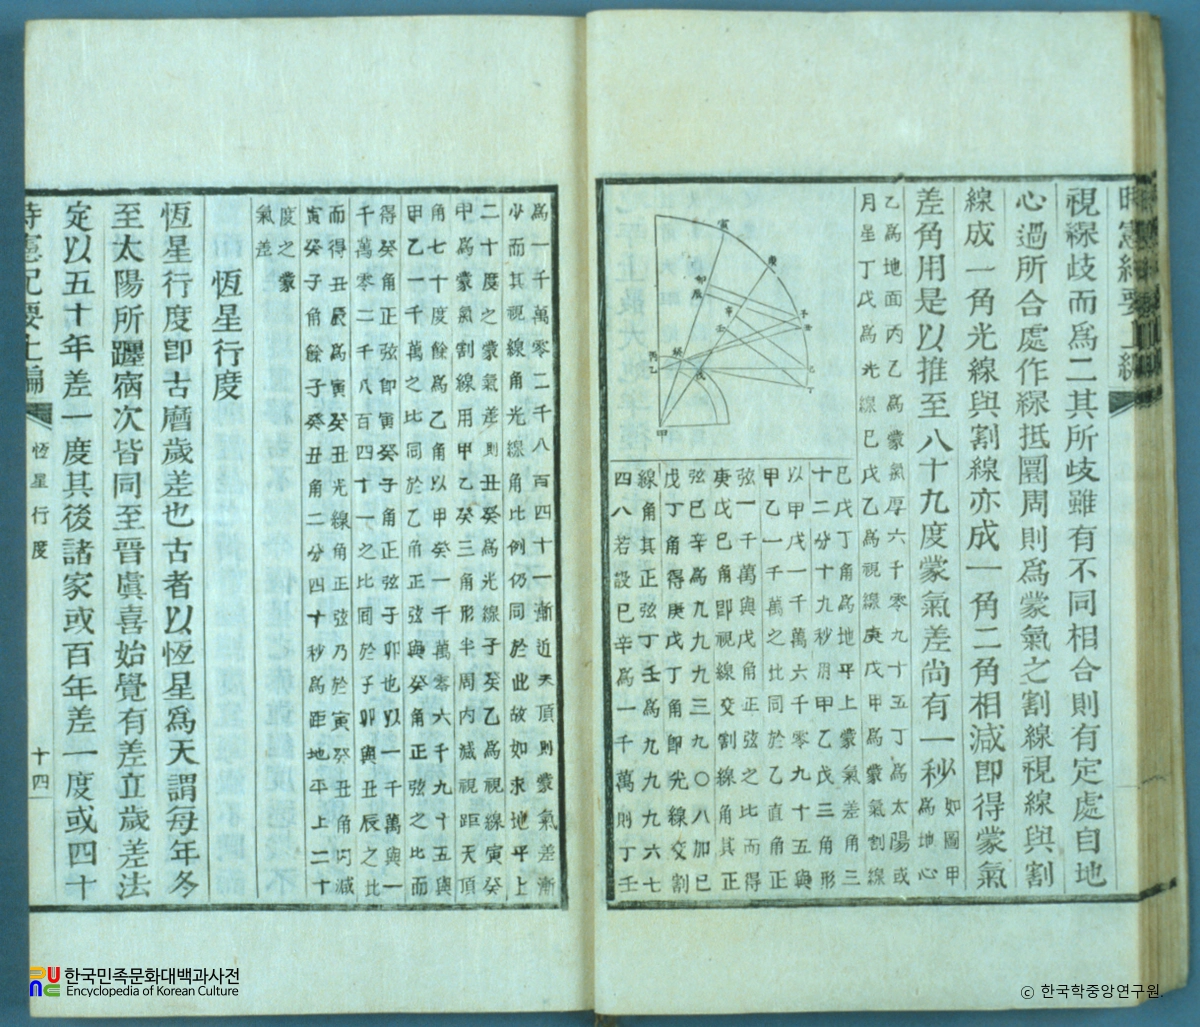 視線歧而爲二其所歧雖有不同相合則有定處自地
心過所合處作線抵圜周則爲蒙氣之割線視線與割
線成一角光線與割線亦成一角二角相減即得蒙氣
差角用是以推至八十九度蒙氣差尚有一秒
如圖甲
爲地心
乙爲地面丙乙爲蒙氣厚六千零九十五丁爲太陽或
月星丁戊爲光線巳戊乙爲視線庚戊甲爲蒙氣割線
巳戊丁角爲地平上蒙氣差角三
十二分十九秒用甲乙戊三角形
以甲戊一千萬六千零九十五與
甲乙一千萬之比同於乙直角正
弦一千萬與戊角正弦之比而得
庚戊巳角即視線交割線角其正
弦巳辛爲九九九三九〇八加巳
戊丁角得庚戊丁角即光線交割
線角其正弦丁壬爲九九九九六七
四八若設巳辛爲一千萬則丁壬
寅
庚
卯
辰
子
丑
辛
壬
丙
乙
癸
戊
己
丁
甲
爲一千萬零二千八百四十一漸近天頂則蒙氣差漸
少而其視線角光線角比例仍同於此故如求地平上
二十度之蒙氣差則丑癸爲光線子癸乙爲視線寅癸
甲爲蒙氣割線用甲乙癸三角形半周內減視距天頂
角七十度餘爲乙角以甲癸一千萬零六千九十五與
甲乙一千萬之比同於乙角正弦與癸角正弦之比而
得癸角正弦即寅癸子角正弦子卯也以一千萬與一
千萬零二千八百四十一之比同於子卯與丑辰之比
而得丑辰爲寅癸丑光線角正弦乃於寅癸丑角內減
寅癸子角餘子癸丑角二分四十秒爲距地平上二十
度之蒙
氣差
恆星行度
恆星行度卽古曆歲差也古者以恆星爲天謂每年冬
至太陽所躔宿次皆同至晉虞喜始覺有差立歲差法
定以五十年差一度其後諸家或百年差一度或四十
時憲紀要上編
恆星行度
十四
한국민족문화대백과사전
Encyclopedia of Korean Culture
ⓒ 한국학중앙연구원.